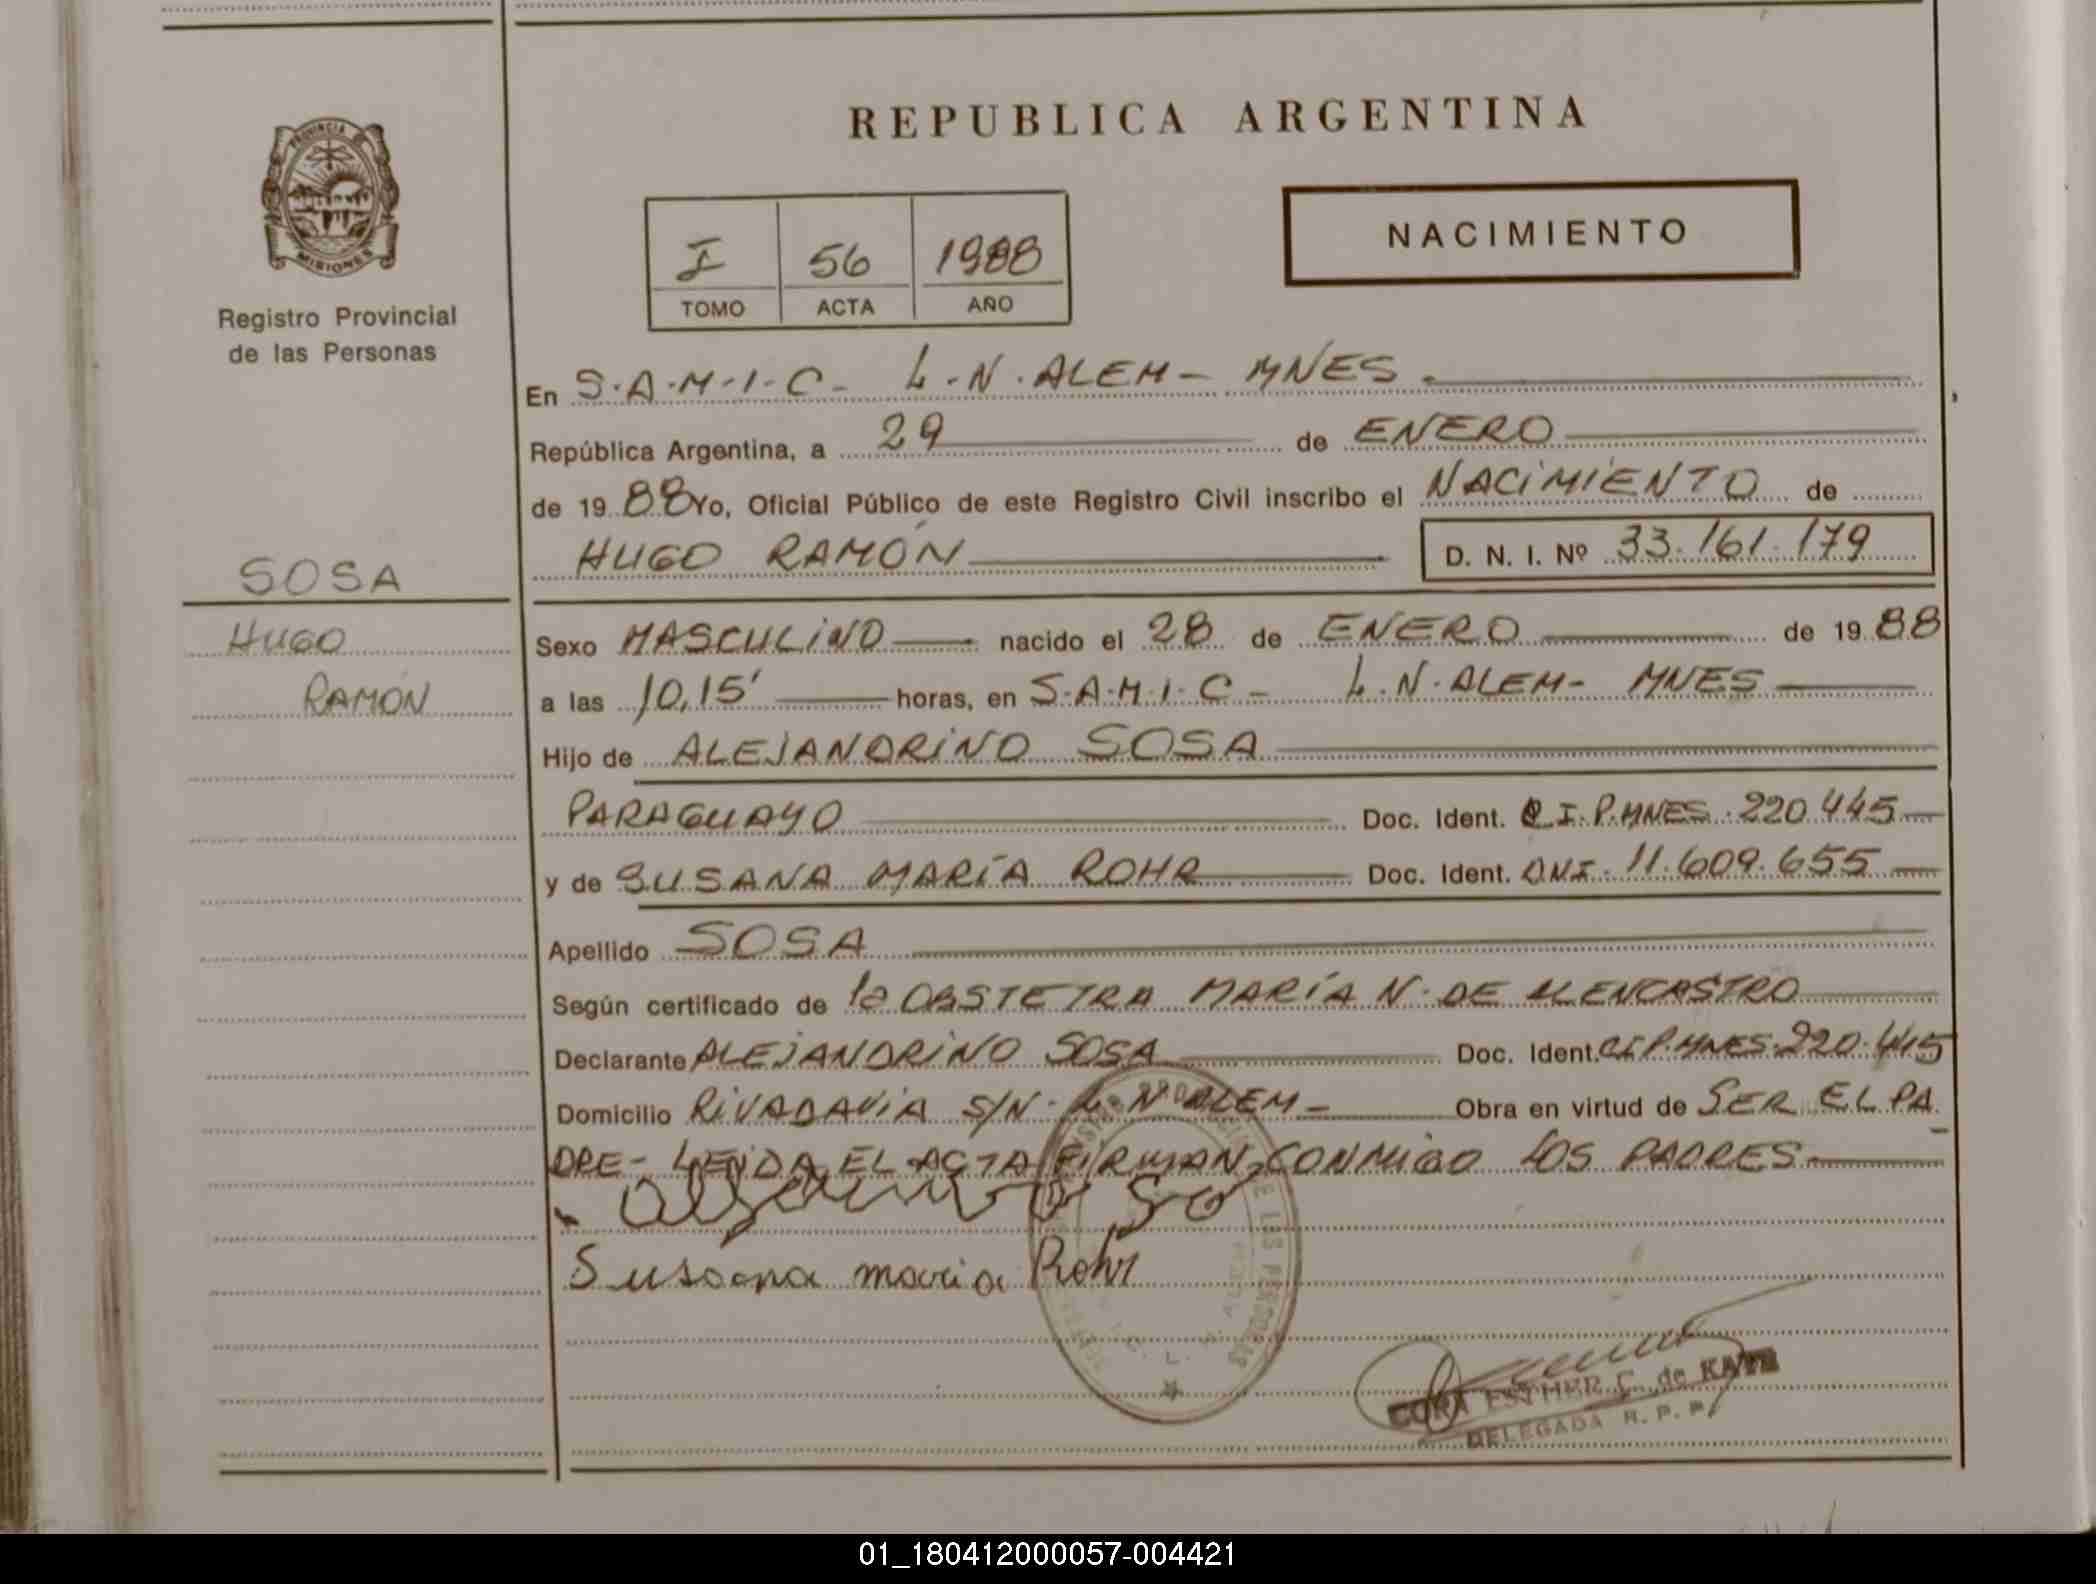 REPUBLICA ARGENTINA
NACIMIENTO
PROVINCIA DE
MISIONES
Registro Provincial
de las Personas
I 56 1988
TOMO ACTA AÑO
En S.A.M.I.C- L.N.ALEM- MNES.
República Argentina, a 29 de ENERO
de 1988 Yo, Oficial Público de este Registro Civil inscribo el NACIMIENTO de
HUGO RAMÓN D. N. I. Nº 33.161.179
SOSA
HUGO
RAMÓN
Sexo MASCULINO nacido el 28 de ENERO de 1988
a las 10,15' horas, en S.A.M.I.C- L.N.ALEM- MNES
Hijo de ALEJANDRINO SOSA
PARAGUAYO Doc. Ident. C.I.P.MNES.220.445
y de SUSANA MARÍA ROHR Doc. Ident. DNI. 11.609.655
Apellido SOSA
Según certificado de la OBSTETRA MARÍA N. DE ALENCASTRO
Declarante ALEJANDRINO SOSA Doc. Ident. CIP.MNES.220.445
Domicilio RIVADAVIA S/N. L.N.ALEM- Obra en virtud de SER EL PA-
DRE- LEIDA EL ACTA FIRMAN CONMIGO LOS PADRES
Susana maria Rohr
DE LAS PERSONAS
ESTHER C. de
DELEGADA R. P. P.
01_180412000057-004421